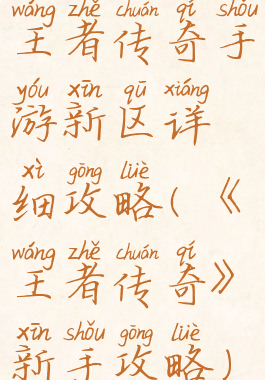 wáng zhě chuán qí shǒu
王者传奇手
yóu xīn qū xiáng
游新区详
xì gōng lüè
细攻略(《
wáng zhě chuán qí
王者传奇》
xīn shǒu gōng lüè
新手攻略)